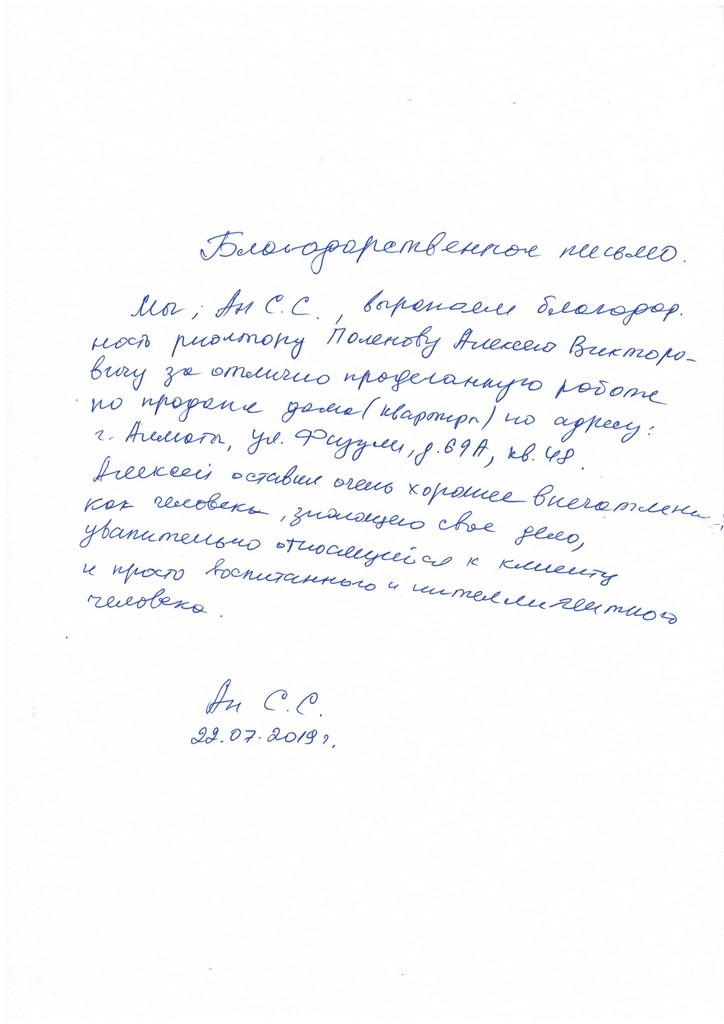 Благодарственное письмо.
Мы, Ан С.С., выражаем благодар.
ность риэлтору Поленову Алексею Викторо-
вичу за отлично проделанную работе
по продаже дома (квартиры) по адресу:
г. Алматы, ул. Физули, д. 69А, кв. 48.
Алексей оставил очень хорошее впечатление
как человека, знающего свое дело,
уважительно относящийся к клиенту
и просто воспитанного и интеллигентного
человека.
Ан С.С.
22.07.2019г.